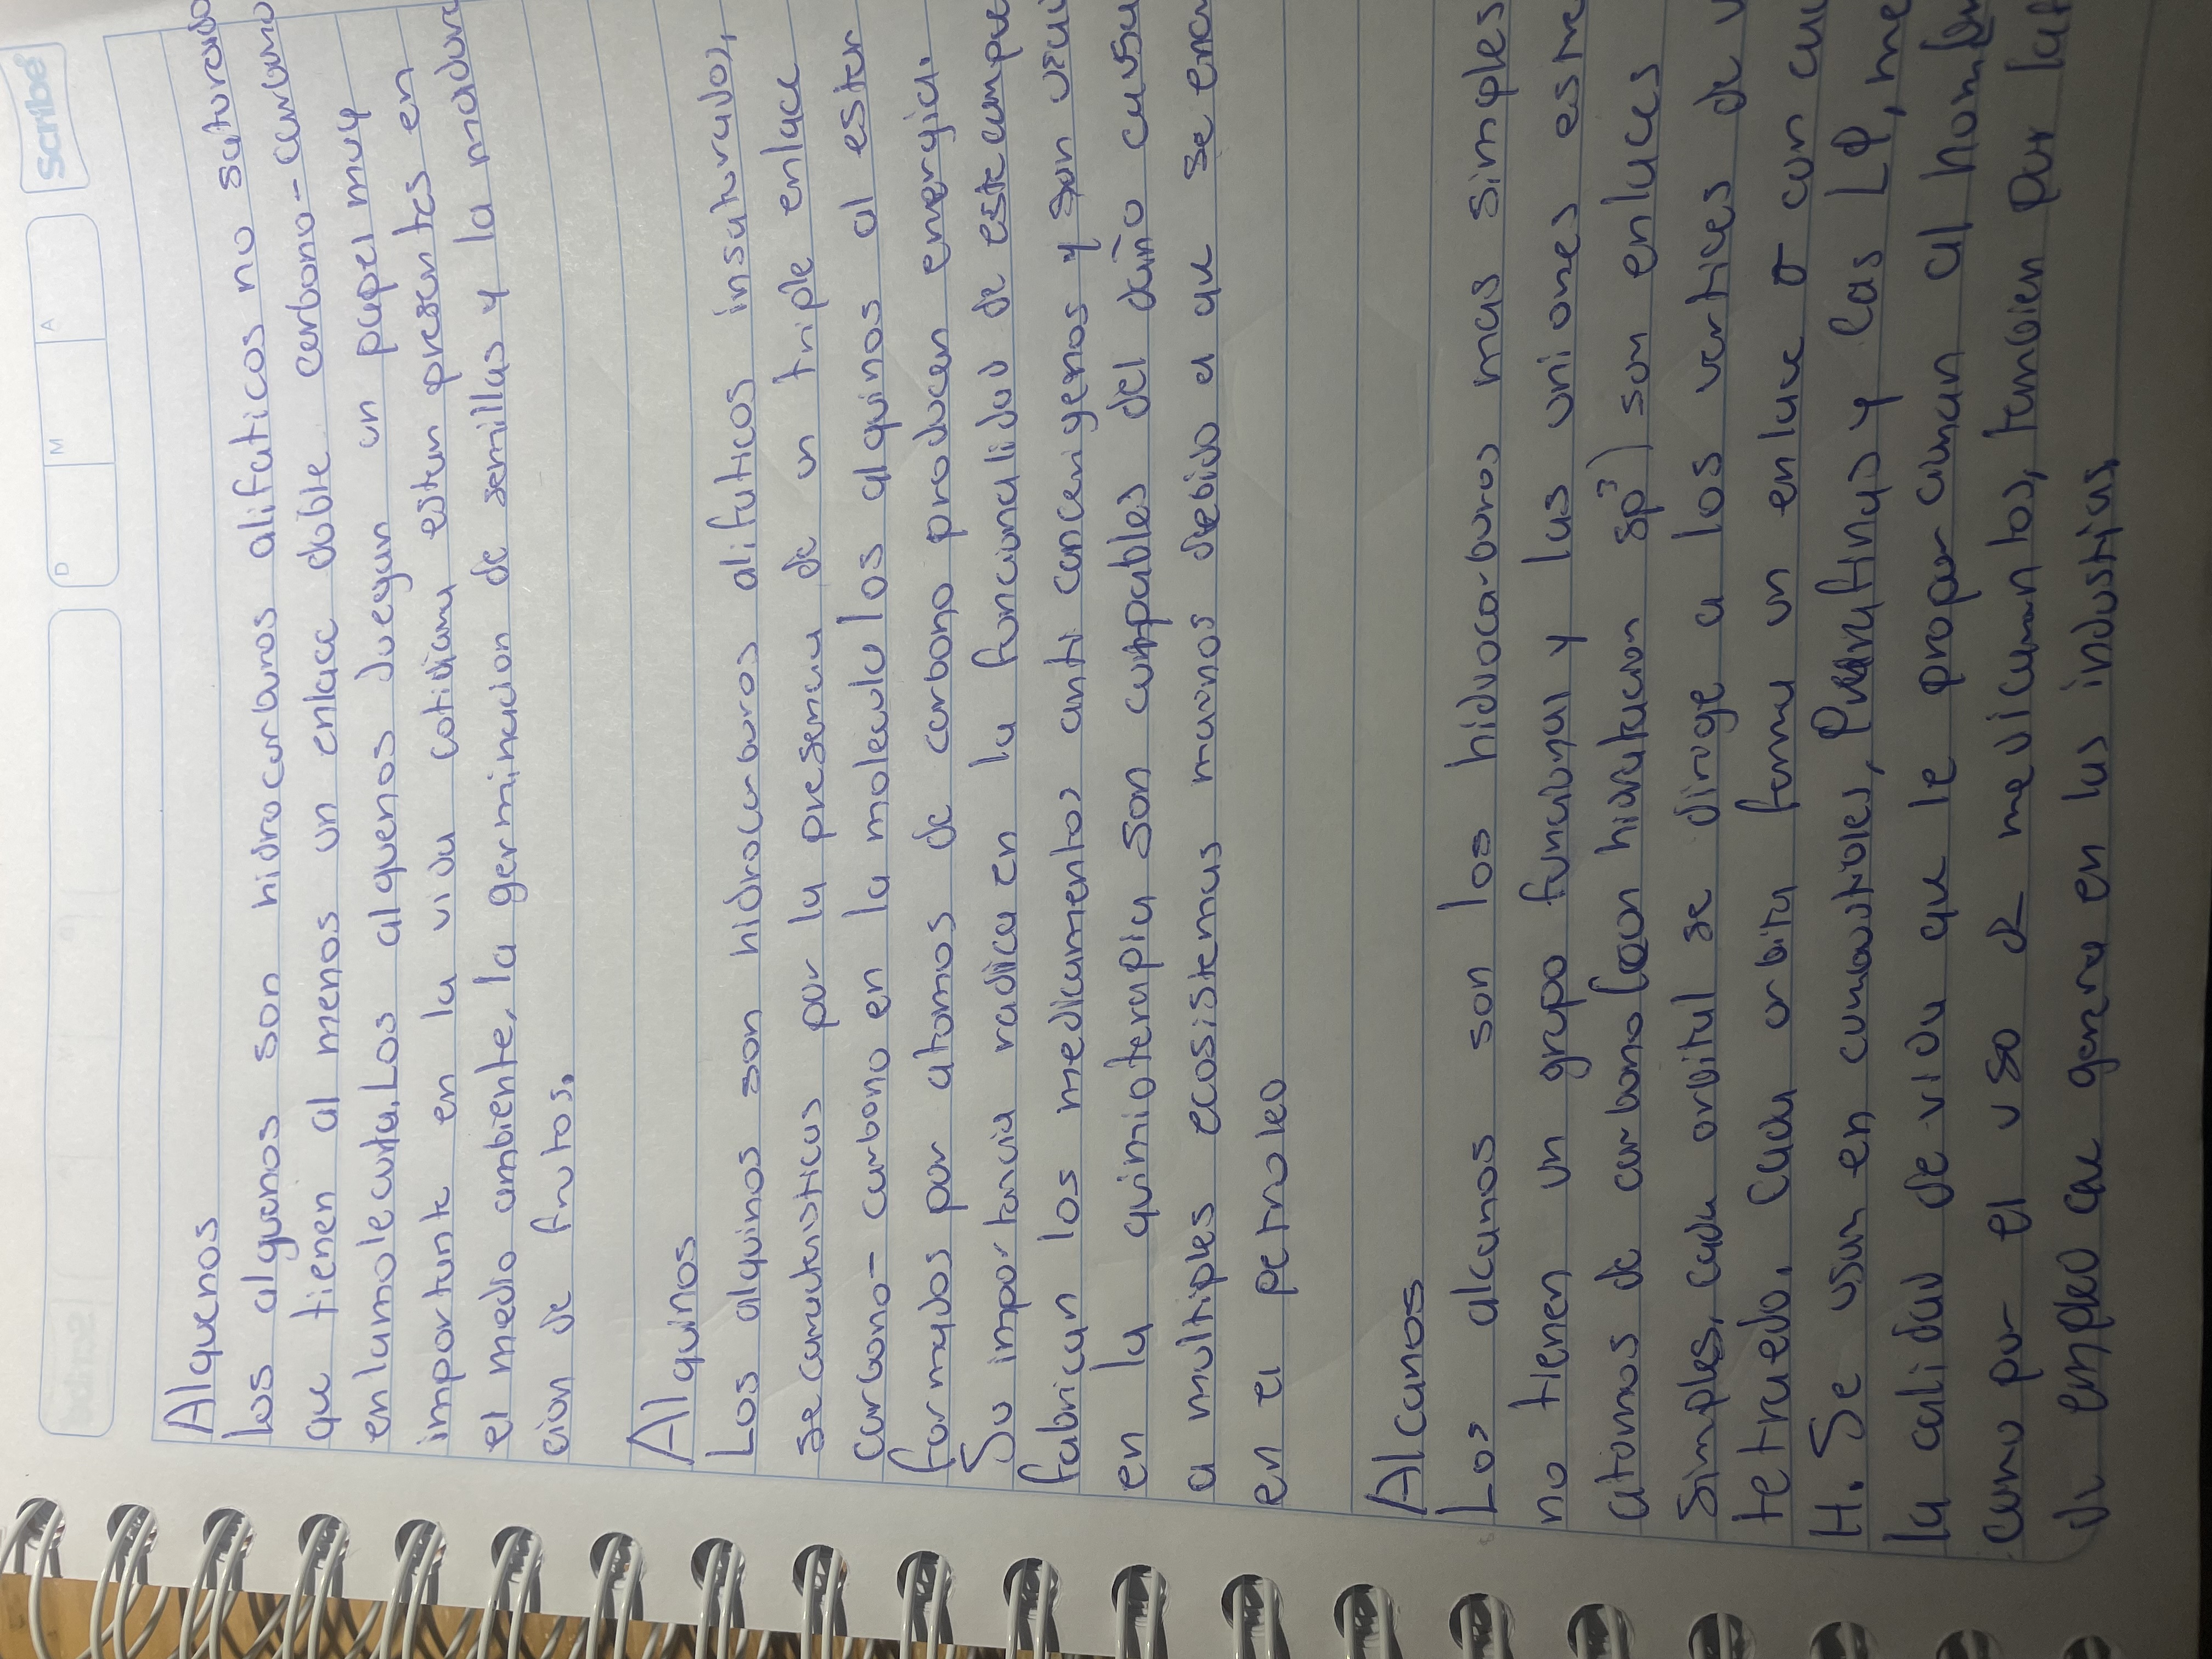 Scribe
D M A
Alquenos
Los alquenos son hidrocarburos alifaticos no saturado
que tienen al menos un enlace doble carbono-carbono
en lamolecula. Los alquenos Juegan un papel muy
importante en la vida cotidiana estan presentes en
el medio ambiente, la germinacion de semillas y la madura
cion de frutos.
Alquinos
Los alquinos son hidrocarburos alifaticos insaturados,
se caracteristicas por la presencia de un triple enlace
carbono-carbono en la molecula los alquinos al estar
formados por atomos de carbono producen energia.
Su importancia radica en la funcionalidad de este compue
fabrican los medicamentos anti cancerigenos y son
en la quimioterapia son culpables del daño
a multiples ecosistemas marinos debido a que se
en el petroleo
Alcanos
Los alcanos son los hidrocarburos mas simples
no tienen un grupo funcional y las uniones
atomos de carbono (con sp³) son enlaces
Simples, cada orbital se diroge a los vertices de
tetraedo. Cada orbita forma un enlace σ con
H. Se usan en cumbustibles, Parafinas y las LP,
la calidad de vida que le proporcionan al
como por el uso d medicamentos, tambien por
de empleo que genera en las industrias,